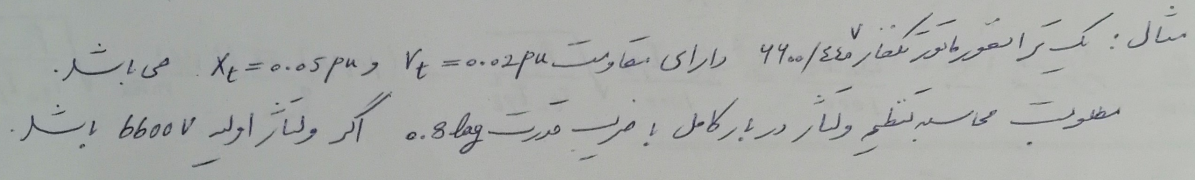 مثال: یک ترانسفورماتور تکفاز ۶۶۰۰/۴۴۰ V دارای مقاومت r_t = 0.02 pu و X_t = 0.05 pu می باشد.
مطلوبست محاسبه تنظیم ولتاژ در بار کامل با ضریب قدرت 0.8 lag اگر ولتاژ اولیه 6600 V باشد.